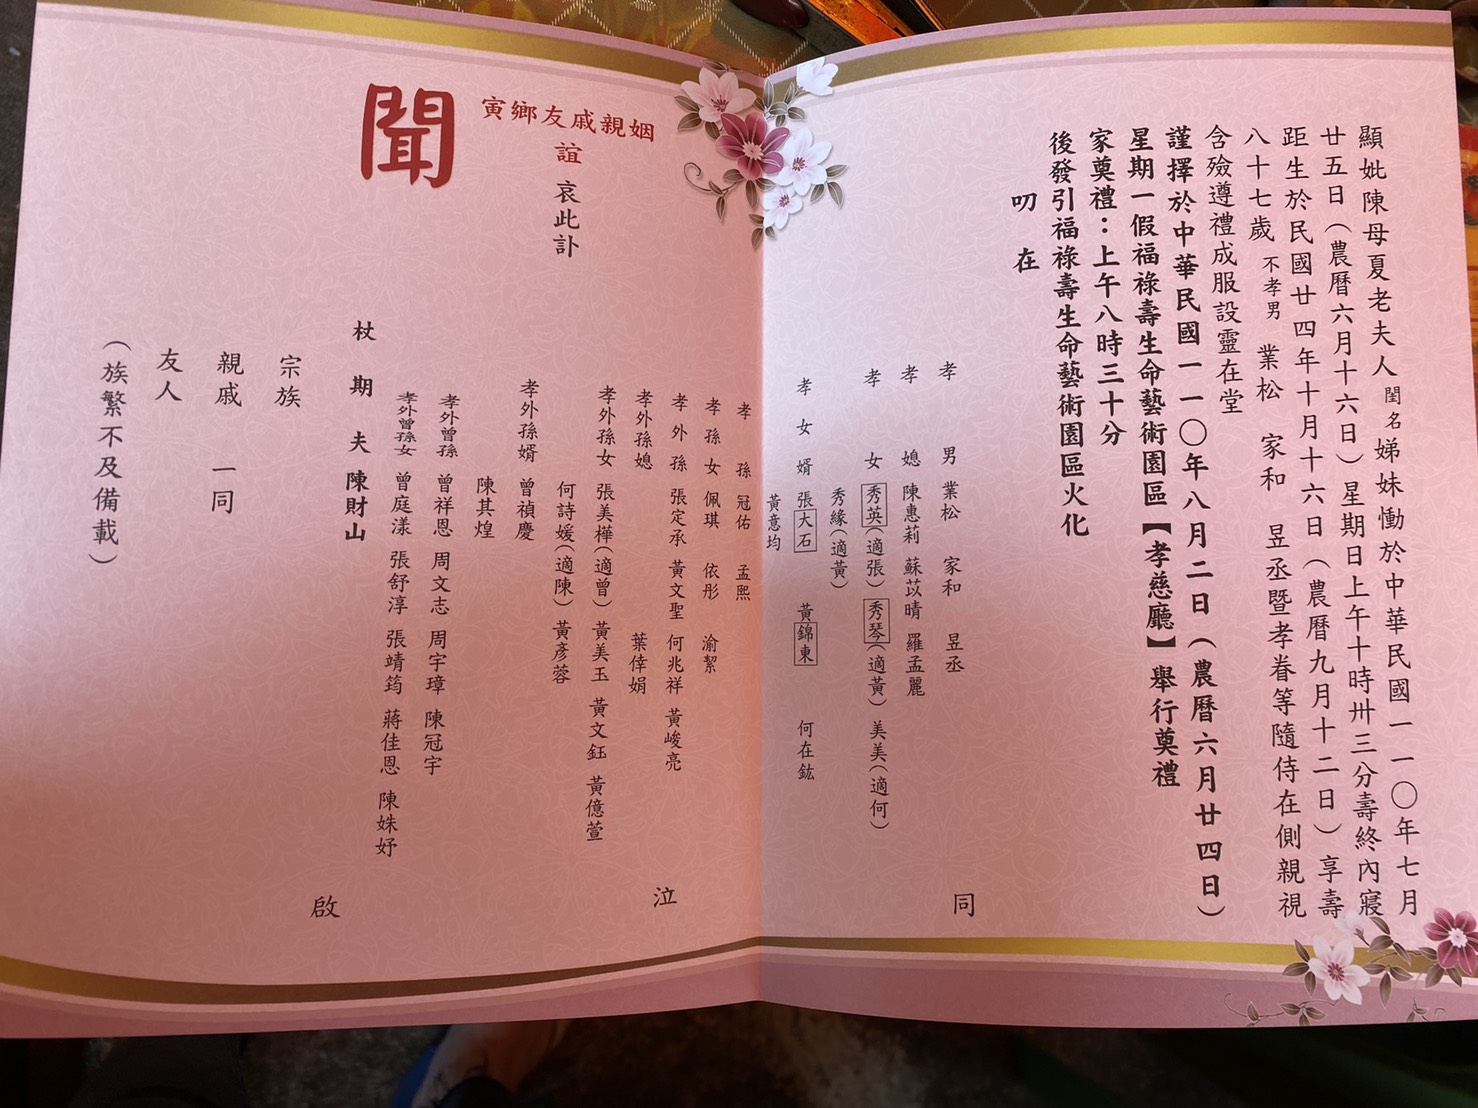 顯妣陳母夏老夫人閨名娣妹慟於中華民國一一〇年七月
廿五日（農曆六月十六日）星期日上午十時卅三分壽終內寢
距生於民國廿四年十月十六日（農曆九月十二日）享壽
八十七歲 不孝男 業松 家和 昱丞暨孝眷等隨侍在側親視
含殮遵禮成服設靈在堂
謹擇於中華民國一一〇年八月二日（農曆六月廿四日）
星期一假福祿壽生命藝術園區【孝慈廳】舉行奠禮
家奠禮：上午八時三十分
後發引福祿壽生命藝術園區火化
叨在
姻親戚友鄉寅
誼 哀此訃
聞
孝男 業松 家和 昱丞
孝媳 陳惠莉 蘇苡晴 羅孟麗
孝女 秀英(適張) 秀琴(適黃) 美美(適何)
秀緣(適黃)
孝女婿 張大石 黃錦東 何在鈜
黃意均
孝孫 冠佑 孟熙
孝孫女 佩琪 依彤 渝絜
孝外孫 張定承 黃文聖 何兆祥 黃峻亮
孝外孫媳 葉倖娟
孝外孫女 張美樺(適曾) 黃美玉 黃文鈺 黃億萱
何詩媛(適陳) 黃彥蓉
孝外孫婿 曾禎慶
陳其煌
孝外曾孫 曾祥恩 周文志 周宇璋 陳冠宇
孝外曾孫女 曾庭漾 張舒淳 張靖筠 蔣佳恩 陳姝妤
杖期夫 陳財山
宗族
親戚 一同
友人
（族繁不及備載）
同
泣
啟